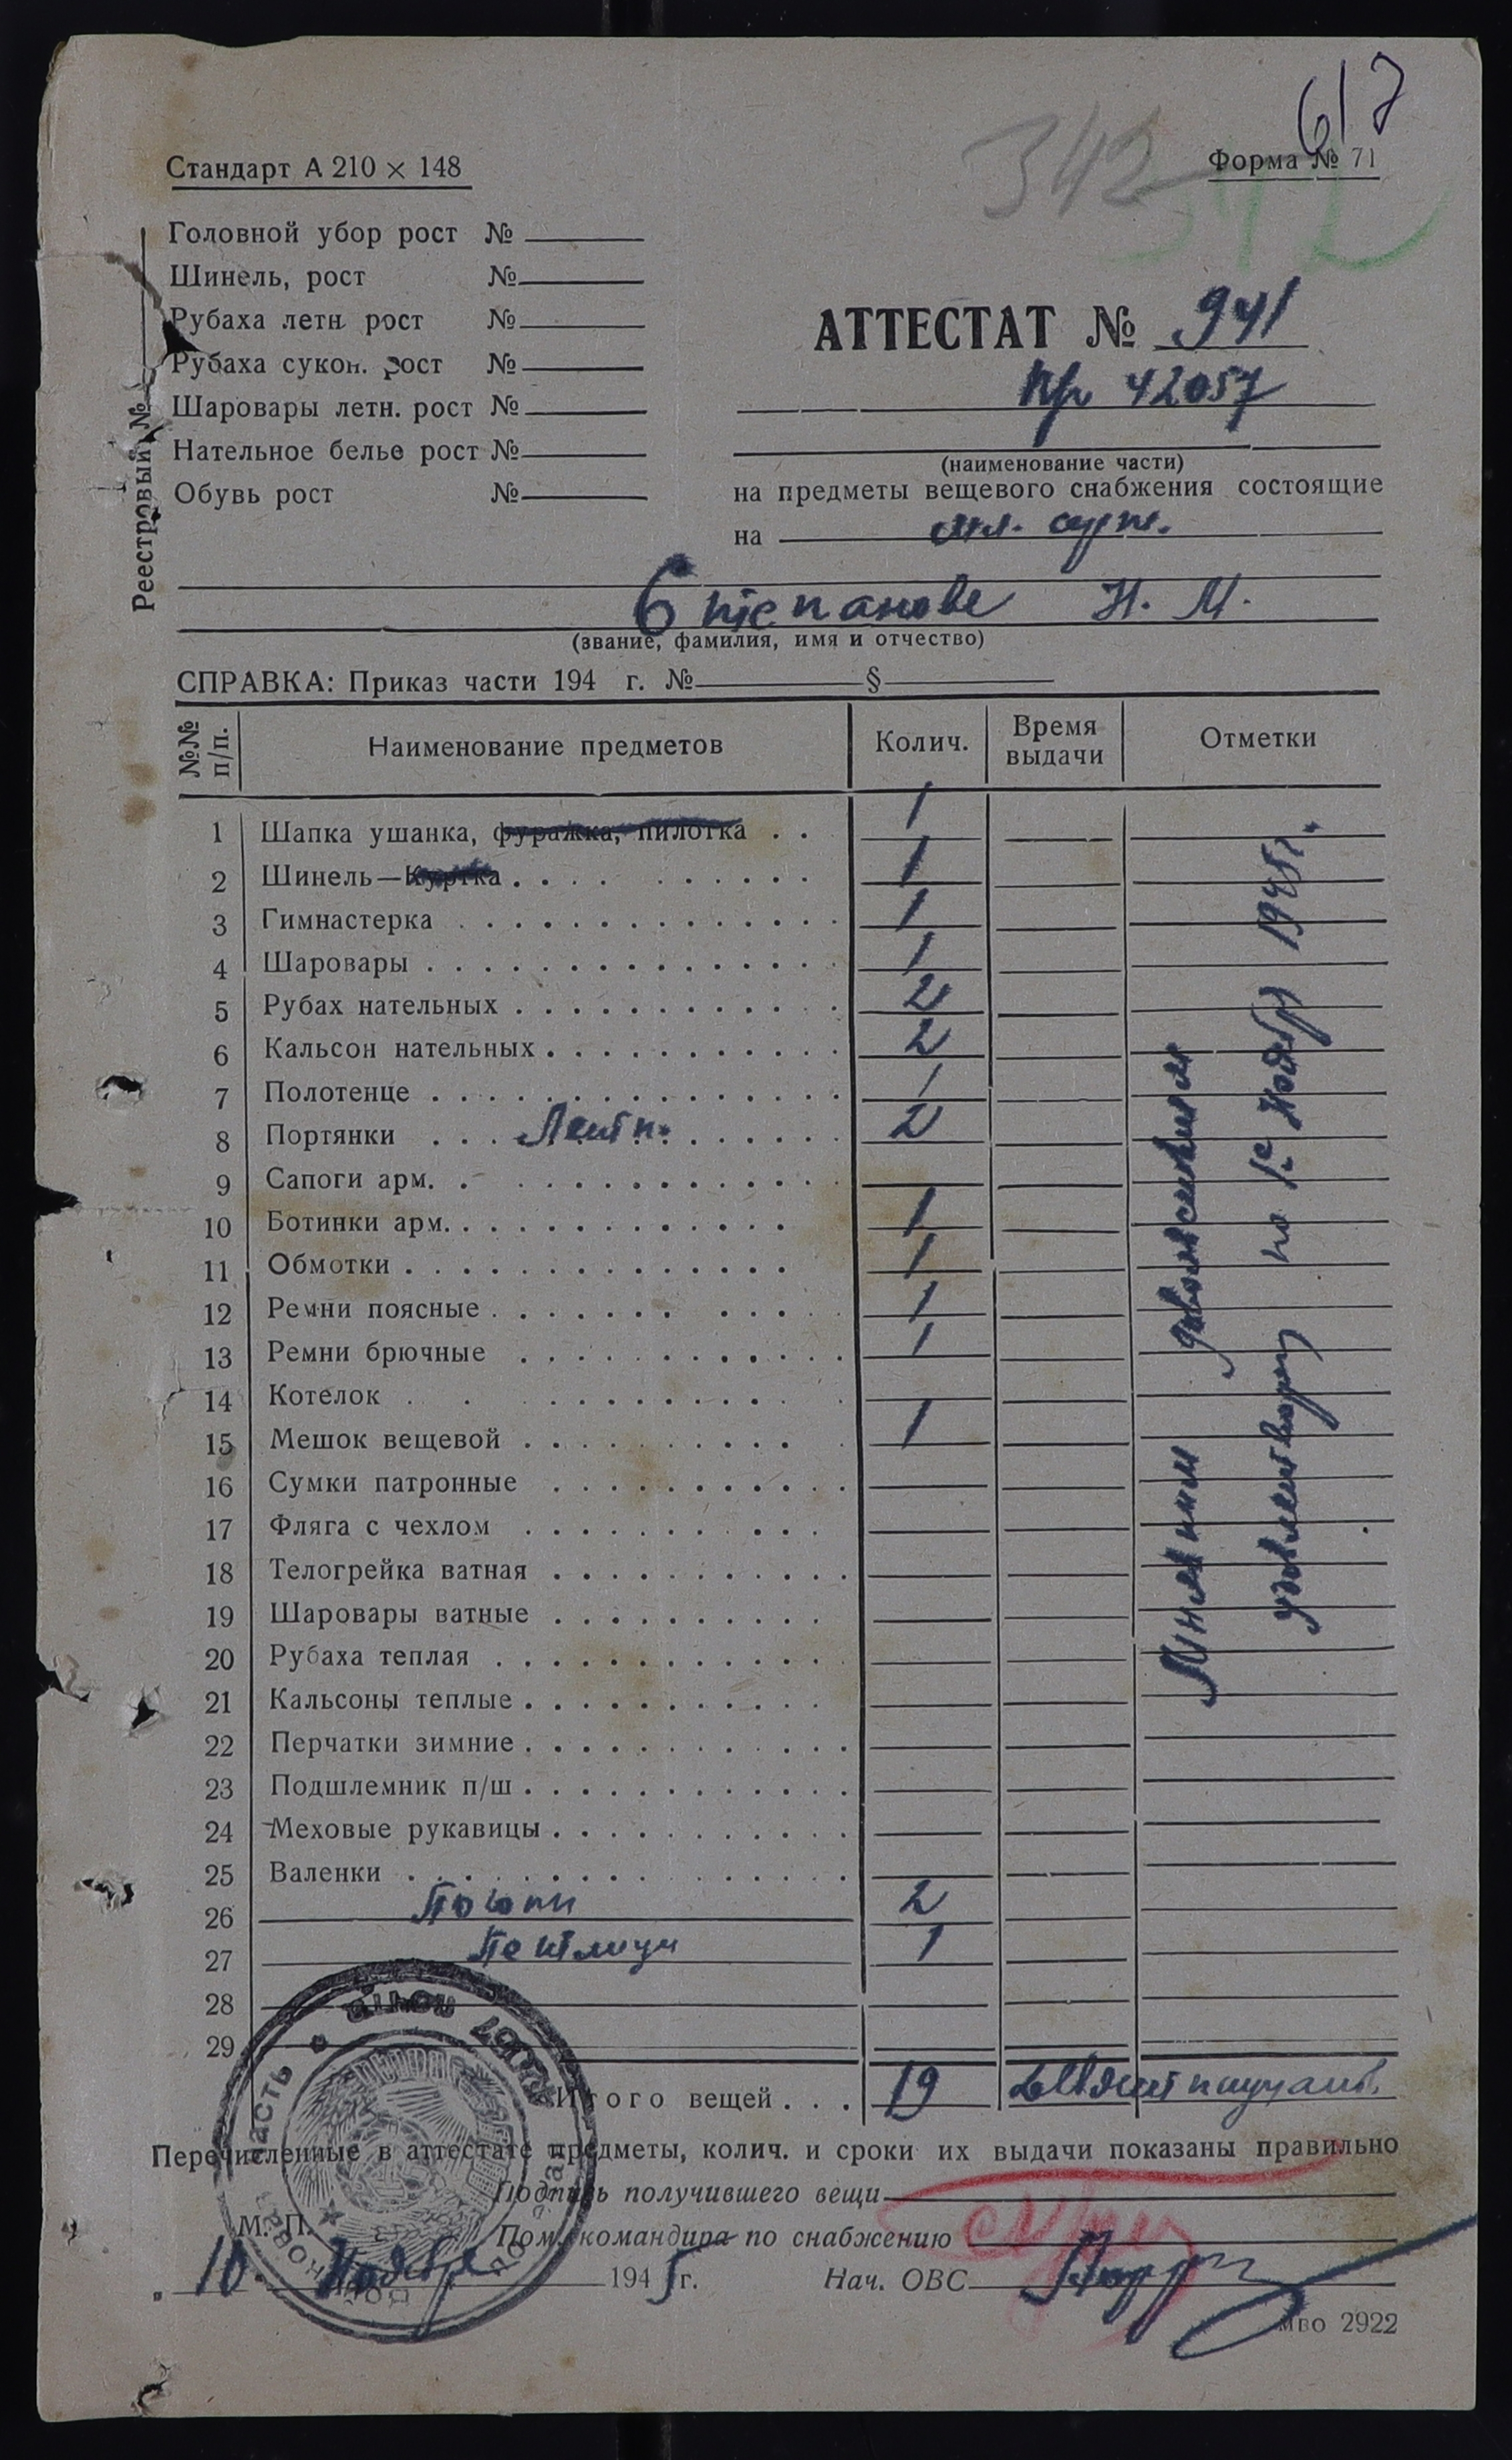 617
342
342
Стандарт А 210 × 148
Форма № 71
Реестровый №
Головной убор рост №
Шинель, рост №
Рубаха летн. рост №
Рубаха сукон. рост №
Шаровары летн. рост №
Нательное белье рост №
Обувь рост №
АТТЕСТАТ № 941
п/п 42057
(наименование части)
на предметы вещевого снабжения состоящие
на мл. серж.
Степанове Н. М.
(звание, фамилия, имя и отчество)
СПРАВКА: Приказ части 194 г. № §
№№ п/п. Наименование предметов Колич. Время выдачи Отметки
1 Шапка ушанка, фуражка, пилотка . . 1
2 Шинель—Куртка 1
3 Гимнастерка 1
4 Шаровары 1
5 Рубах нательных 2
6 Кальсон нательных 2
7 Полотенце 1
8 Портянки Летн. 2
9 Сапоги арм.
10 Ботинки арм. 1
11 Обмотки 1
12 Ремни поясные 1
13 Ремни брючные 1
14 Котелок
15 Мешок вещевой 1
16 Сумки патронные
17 Фляга с чехлом
18 Телогрейка ватная
19 Шаровары ватные
20 Рубаха теплая
21 Кальсоны теплые
22 Перчатки зимние
23 Подшлемник п/ш
24 Меховые рукавицы
25 Валенки
26 Погоны 2
27 Петлицы 1
28
29
довольствием
удовлетворен по 1е Ноября 1945г.
Итого вещей . . . 19
Перечисленные в аттестате предметы, колич. и сроки их выдачи показаны правильно
Подпись получившего вещи
М. П.
Пом. командира по снабжению
10 Ноября 1945 г.
Нач. ОВС
МВО 2922